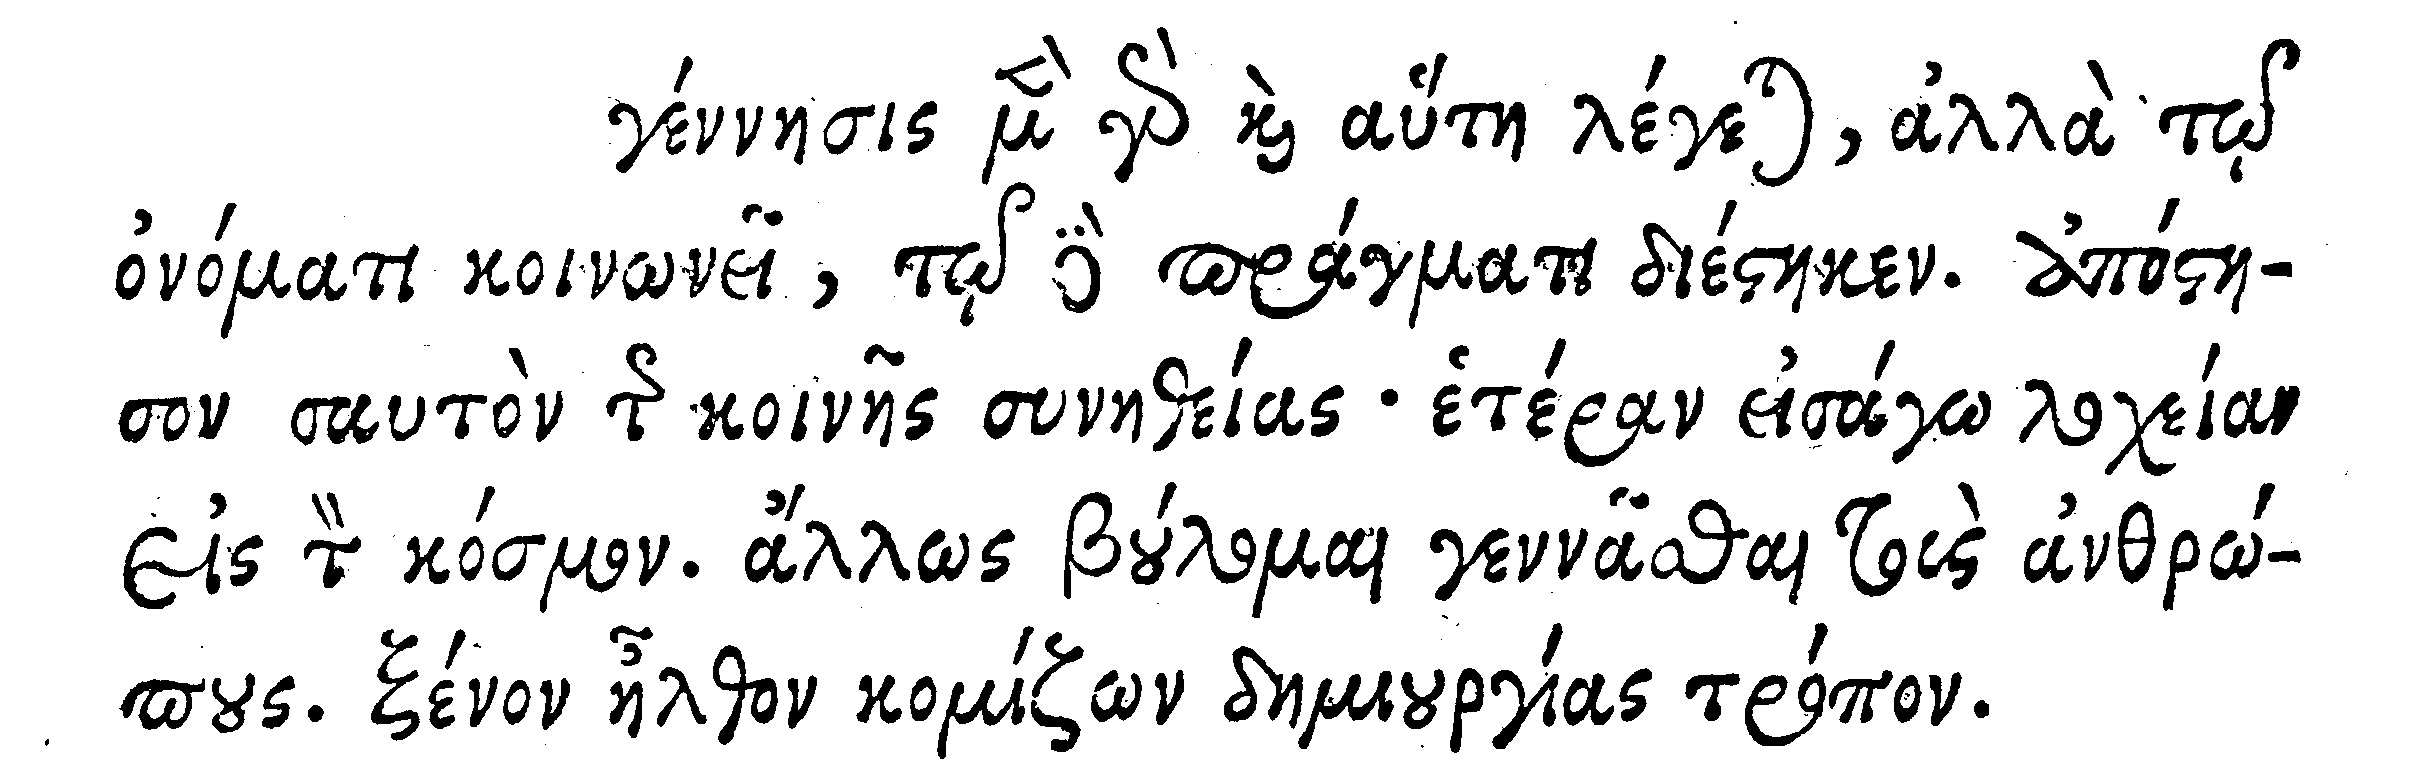 γέννησις μὲν γὰρ καὶ αὕτη λέγεται, ἀλλὰ τῷ
ὀνόματι κοινωνεῖ, τῷ δὲ πράγματι διέστηκεν. ἀπόστη-
σον σαυτὸν τῆς κοινῆς συνηθείας· ἑτέραν εἰσάγω λοχείαν
εἰς τὸν κόσμον. ἄλλως βούλομαι γεννᾶσθαι τοὺς ἀνθρώ-
πους. ξένον ἦλθον κομίζων δημιουργίας τρόπον.